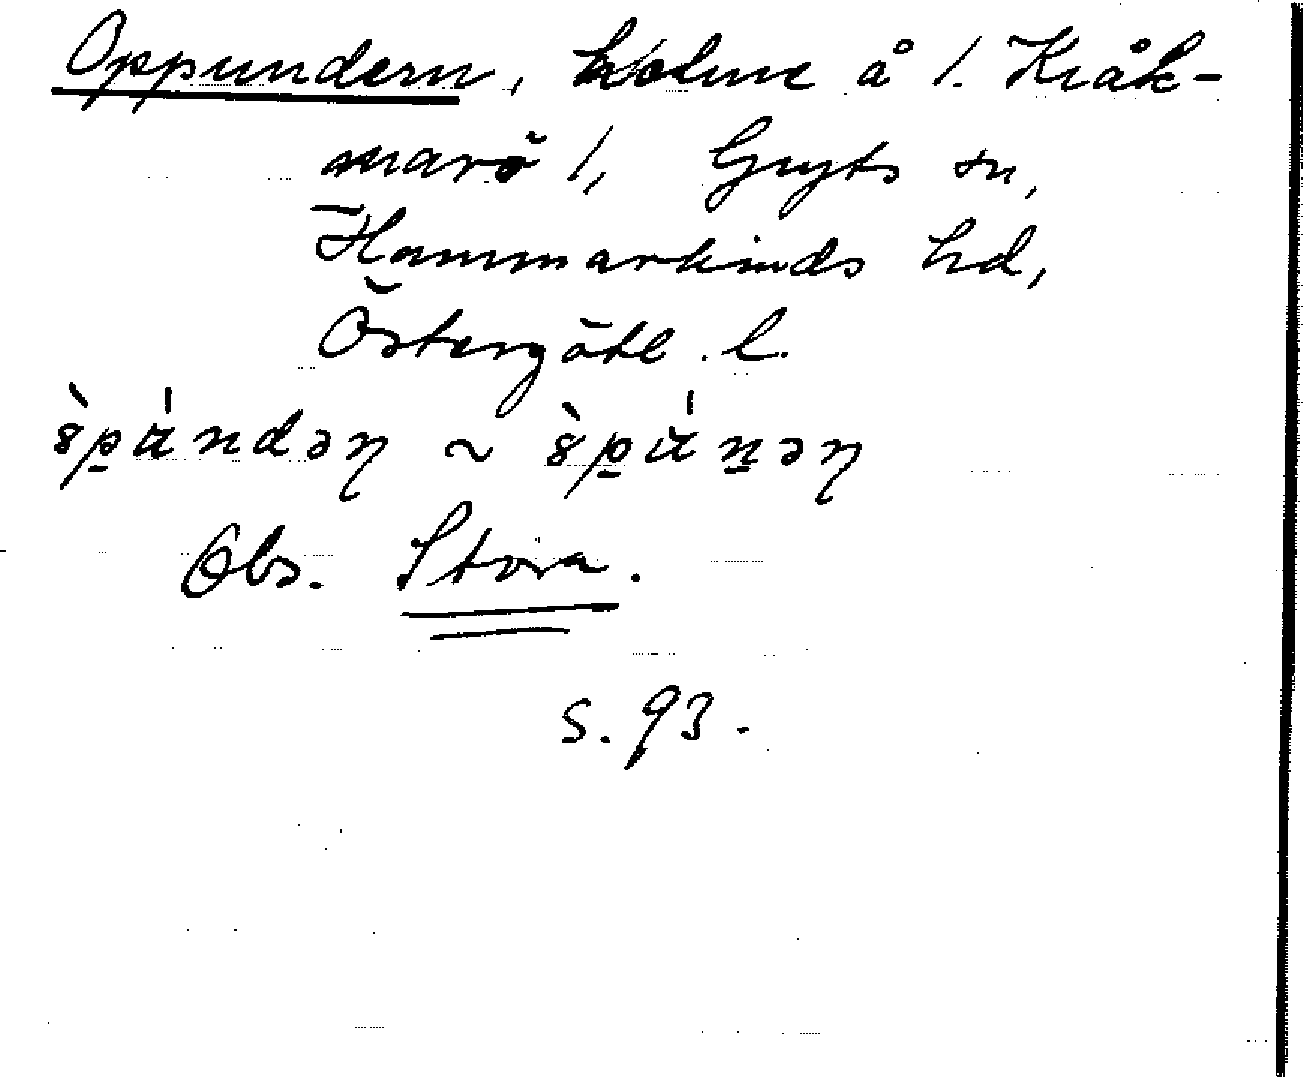 Oppundern, holme å 1. Kråk-
marö 1, Gryts sn,
Hammarkinds hd,
Östergötl. l.
Obs. Stora.
s. 93.